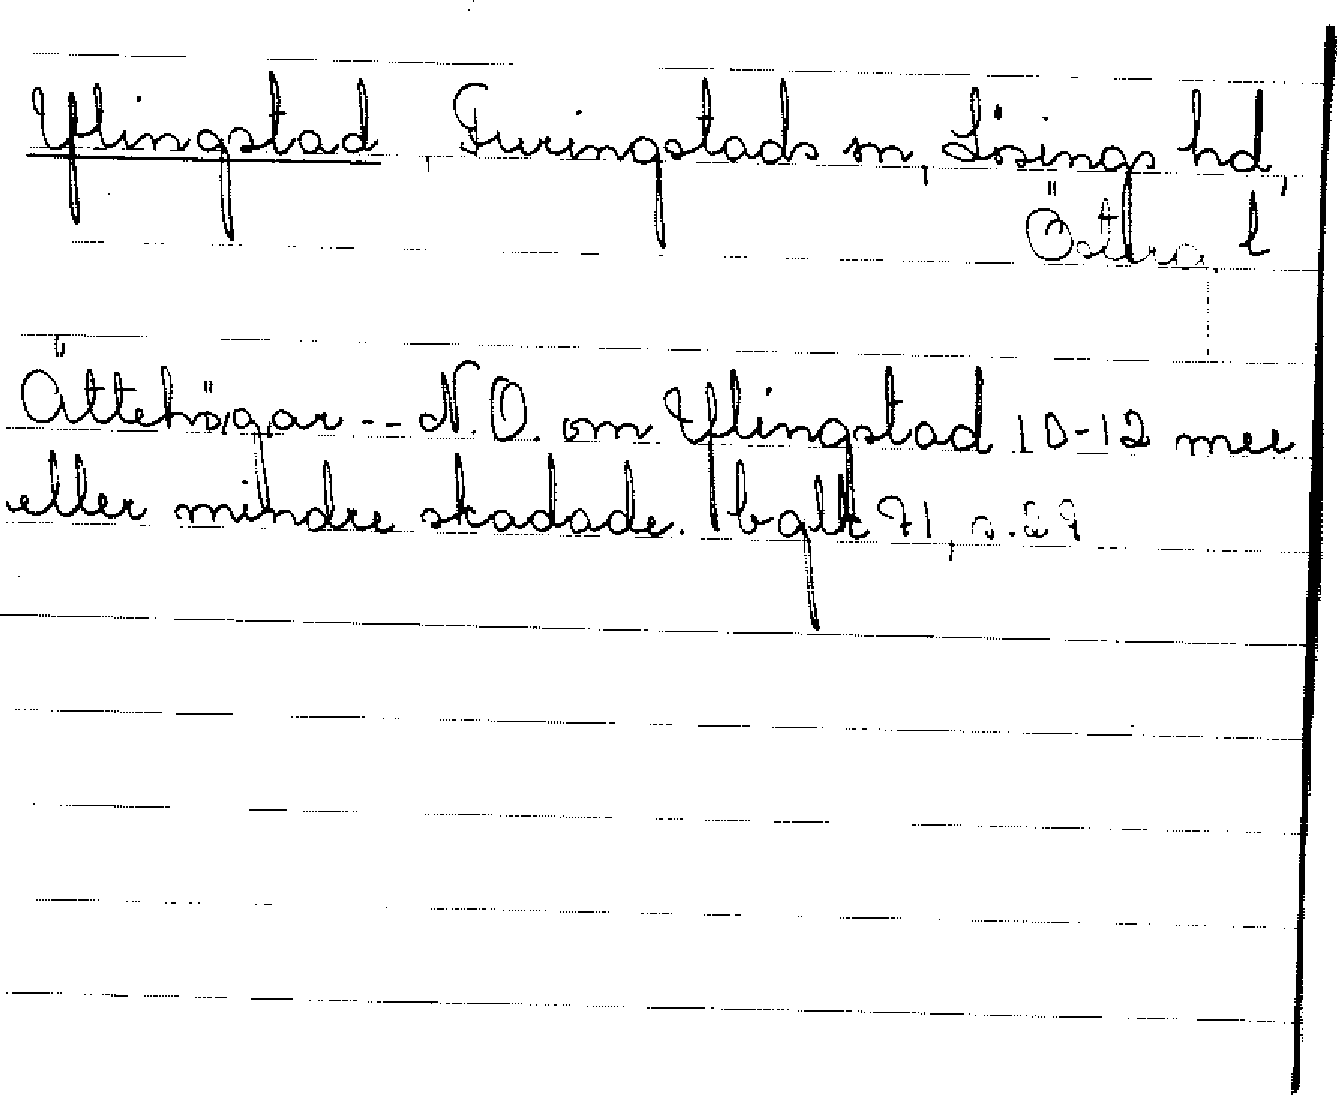 Yflingstad, Furingstads sn, Lösings hd,
Östra l
Ättehögar -- N.O. om Yflingstad 10-12 mer
eller mindre skadade. 71, s. 29